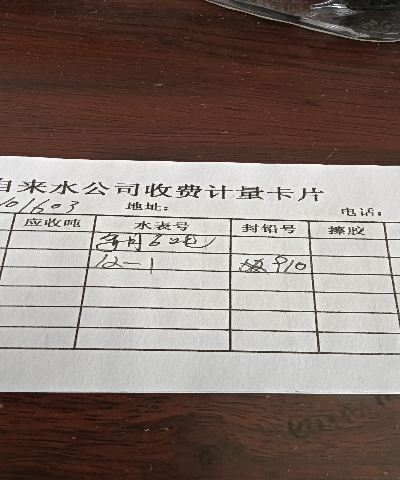 自来水公司收费计量卡片
101603 地址： 电话：
应收吨 水表号 封铅号 擦胶
每月6吨
12-1 910